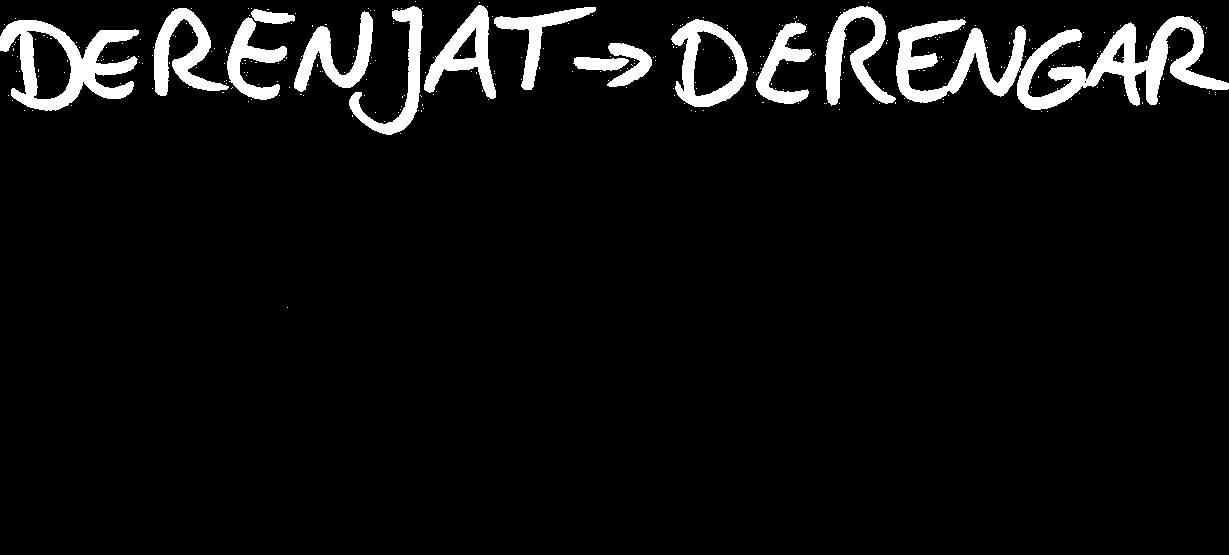 DERENJAT → DERENGAR